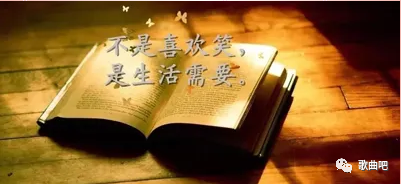 不是喜欢笑，
是生活需要。
歌曲吧